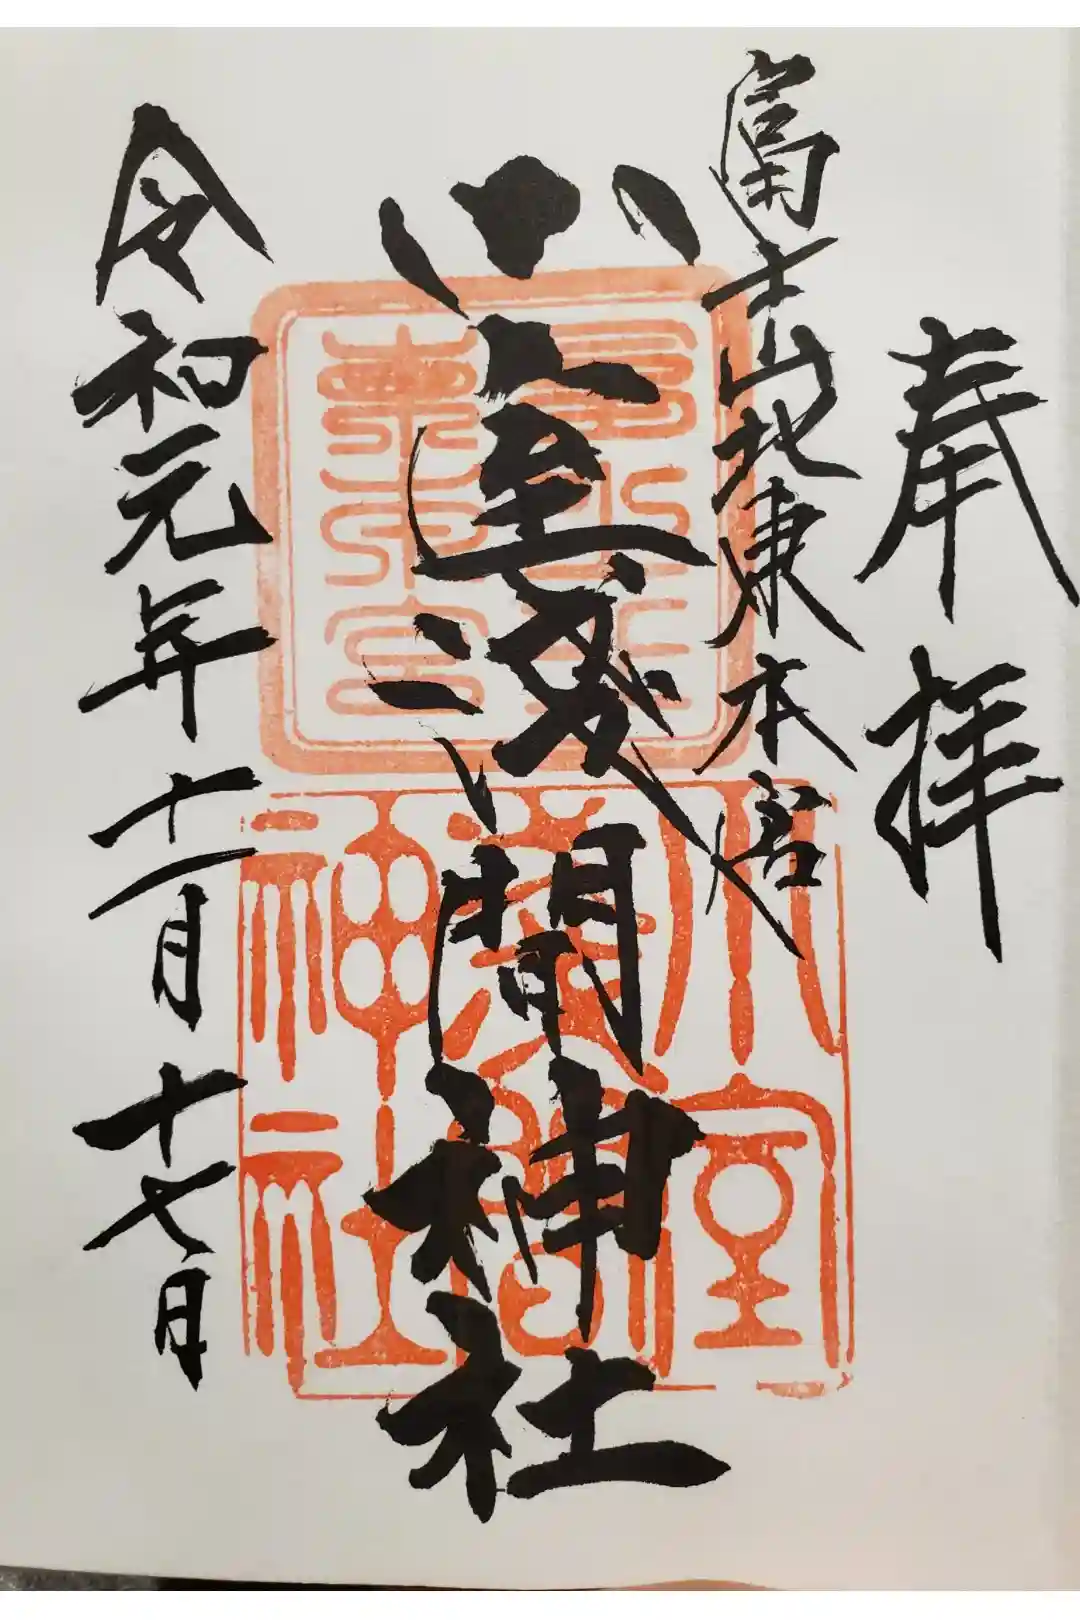 奉拝
富士山北東本宮
小室浅間神社
令和元年十一月十七日
富士山
東本宮
小室
浅間
神社